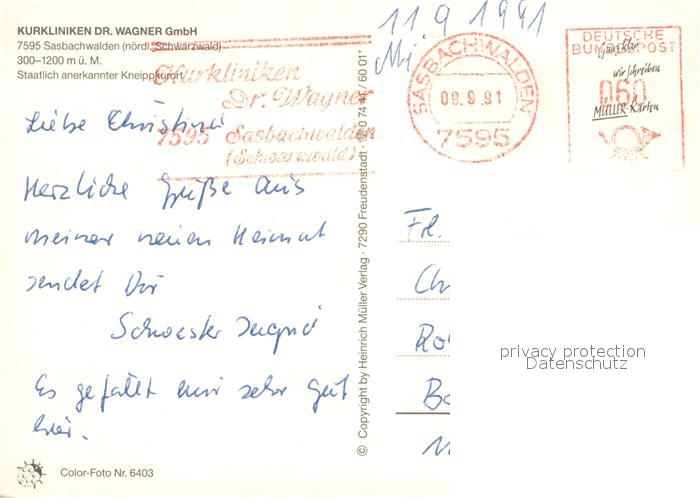 KURKLINIKEN DR. WAGNER GmbH
7595 Sasbachwalden (nördl. Schwarzwald)
300–1200 m ü. M.
Staatlich anerkannter Kneippkurort
Kurkliniken
Dr. Wagner
7595 Sasbachwalden
(Schwarzwald)
11.9 1991
Mi.
SASBACHWALDEN
09.9.91
7595
DEUTSCHE
BUNDESPOST
Glückliche
wir schreiben
060
MÜLLER Karten
Liebe Christine
Herzliche Grüße aus
meiner neuen Heimat
sendet Dir
Schwester Ingrid
Es gefällt mir sehr gut
hier.
© Copyright by Heinrich Müller Verlag · 7290 Freudenstadt · ☎ 0 74 41 / 60 01 *
Frl.
Ch
Ro
Ba
privacy protection
Datenschutz
Color-Foto Nr. 6403